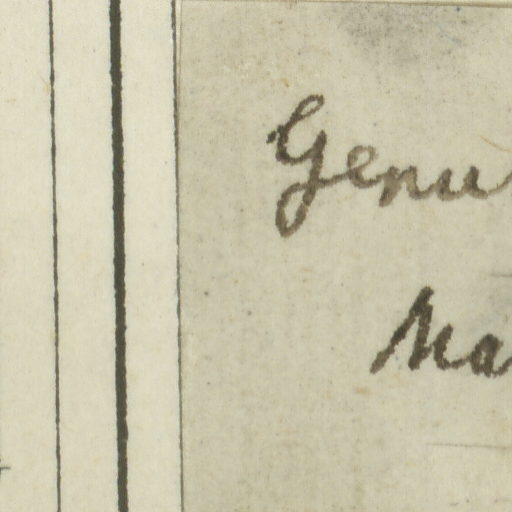 Genu
Ma